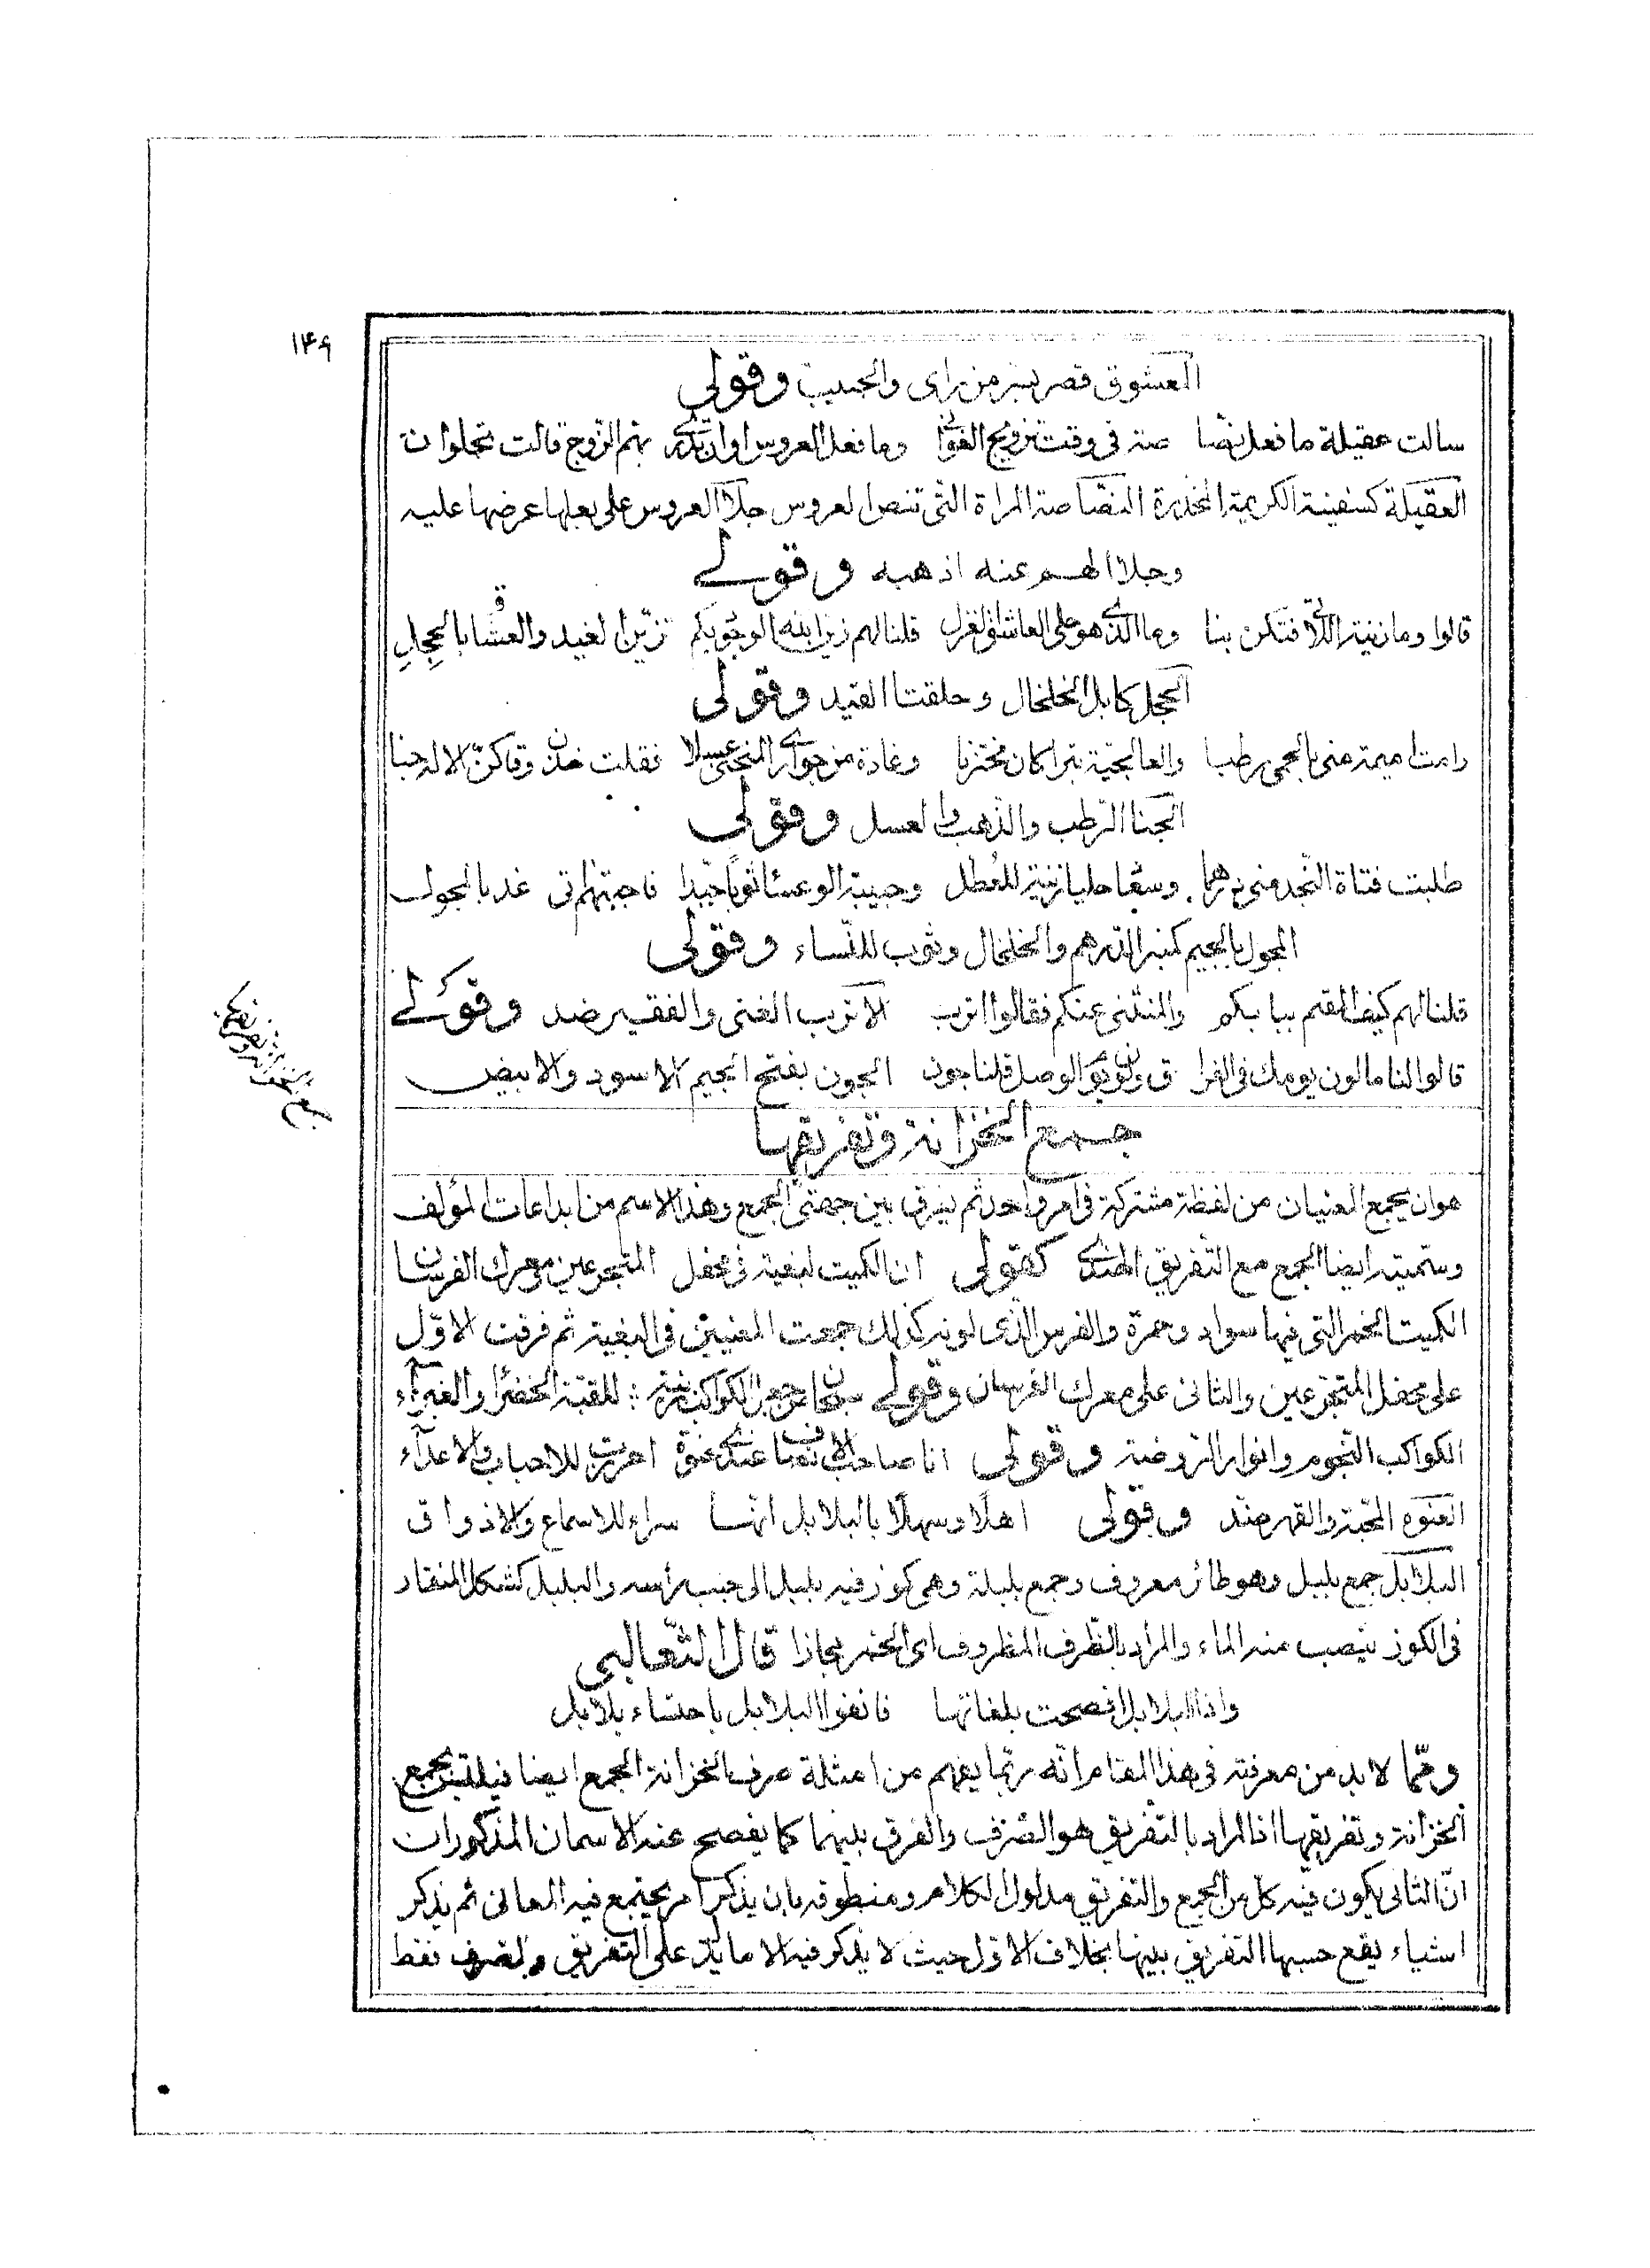 ۱۴۹
المعشوق قصر بسر من رای والحبیب وقولی
سالت عقیلة ما فعل نصا صة فی وقت تزویج الغوانی وما فعل العروس اوان بهم الزوج قالت تجلوان
العقیلة کسفینة الکریمة المخدرة النصاصة المراة التی تنص العروس جلا العروس علی بعلها عرضها علیه
وجلا الهم عنه اذهبه وقولی
قالوا وما زینة اللاتی فتکن بنا وما الذی هو علی العاشق لغزل قلنا لهم زین الله الوجوه بکم تزیّن الغید والعشاق بالحِجِلِ
الحجل کابل الخلخال وحلقتا القید وقولی
رامت امیمة منی بالحمی رطبا والعالجیّة تبرا کان مخترنا وغادة من جواری المنحنی عسلا فقلت خذن وقاکنّ الاله جنا
الجنا الرطب والذهب والعسل وقولی
طلبت فتاة النجد منی درهما وسعا حلیا زینة للعُطّل وحبیبة الوعسا ثوباً جیّدا فاجبتهم تی غد بالمجول
المجول بالجیم کمنبر الدرهم والخلخال وثوب للنّساء وقولی
قلنا لهم کیف المقیم ببابکم والمنثنی عنکم فقالوا اترب الاترب الغنی والفقیر ضد وقولی
قالوا لنا ما لون یومک فی الفرا ق ولون یوم الوصل قلنا جون الجون بفتح الجیم الاسود والابیض
جمع الخزانة وتفریقها
هو ان یجمع المعنیان من لفظة مشترکة فی امر واحد ثم یفرق بین جهتی الجمع وهذا الاسم من ابداعات المؤلف
وسمّیته ایضا الجمع مع التفریق الهندی کقولی ان الکمیت لبغیة فی محفل المتجرعین ومعرک الفرسان
الکمیت الخمر التی فیها سواد وحمرة والفرس الذی لونه کذلک جمعت المعنیین فی البغیة ثم فرقت الاوّل
علی محفل المتجرعین والثانی علی معرک الفرسان وقولی سبحان من جعل الکواکب زینة للقبّة الخضراء والغبرآء
الکواکب النّجوم وانوار الروضة وقولی انا صاحب الانصاف عندی عنوة احرزت للاحباب والاعدآء
العنوة المحبّة والقهر ضدّ وقولی اهلًا وسهلًا بالبلابل انّها سراء للاسماع والاذواق
البلابل جمع بلبل وهو طائر معروف وجمع بلبلة وهی کوز فیه بلبل الی جنب رأسه والبلبل کشکل المنقار
فی الکوز ینصب منه الماء والمراد بالظرف المظروف ای الخمر مجازا قال الثّعالبی
واذا البلابل افصحت بلغاتها فانف البلابل باحتساء بلابل
وممّا لا بد من معرفته فی هذا المقام انّه ربّما یفهم من امثلة صرف الخزانة الجمع ایضا فیلتبس بجمع
الخزانة وتفریقها اذ المراد بالتفریق هو الصّرف والفرق بینهما کما یفصح عنه الاسمان المذکوران
انّ الثانی یکون فیه کل من الجمع والتفریق مدلول الکلام ومنطوقه بان یذکر امر یجتمع فیه المعانی ثم یذکر
اشیاء یقع حسبها التفریق بینها بخلاف الاوّل حیث لا یذکر فیه الا ما یدل علی التفریق والصرف فقط